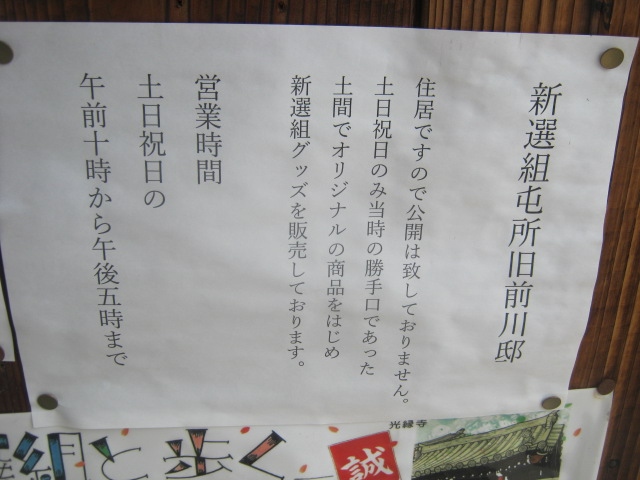 新選組屯所旧前川邸
住居ですので公開は致しておりません。
土日祝日のみ当時の勝手口であった
土間でオリジナルの商品をはじめ
新選組グッズを販売しております。
営業時間
土日祝日の
午前十時から午後五時まで
組と歩く
誠
光縁寺